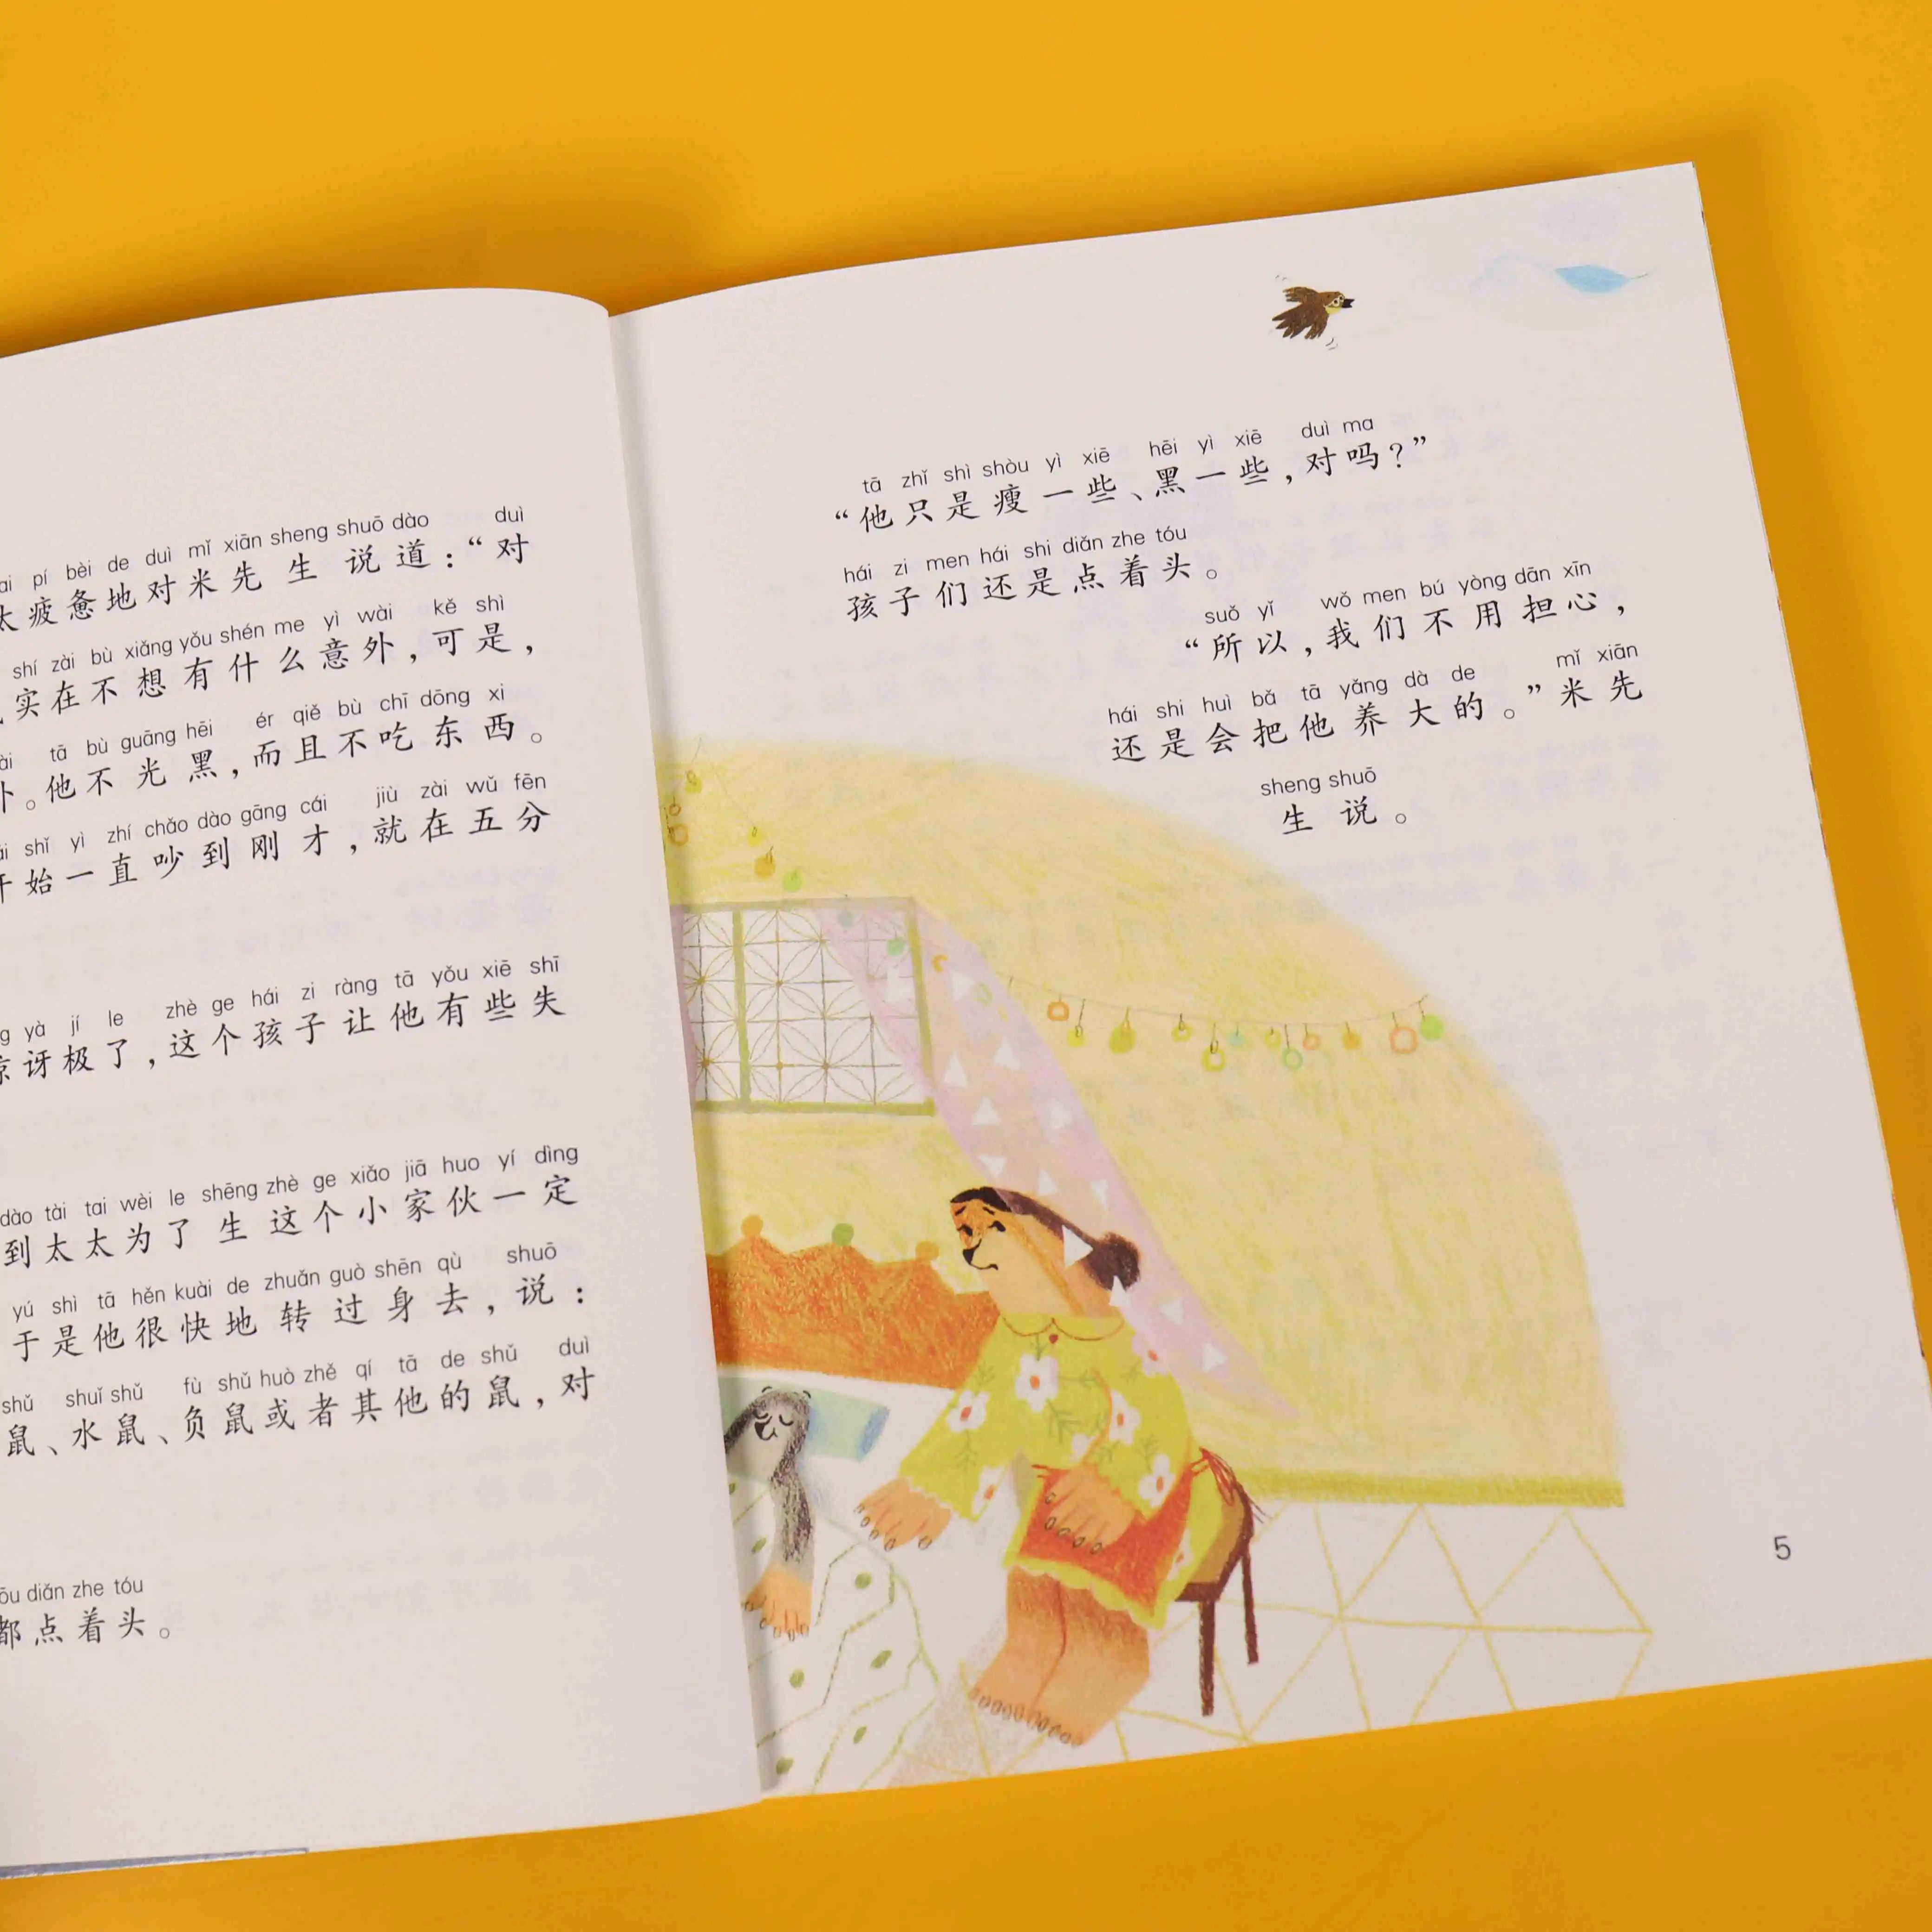 pí bèi de duì mǐ xiān sheng shuō dào duì
太疲惫地对米先生说道：“对
shí zài bù xiǎng yǒu shén me yì wài kě shì
实在不想有什么意外，可是，
tā bù guāng hēi ér qiě bù chī dōng xi
。他不光黑，而且不吃东西。
shǐ yì zhí chǎo dào gāng cái jiù zài wǔ fēn
始一直吵到刚才，就在五分
yà jí le zhè ge hái zi ràng tā yǒu xiē shī
讶极了，这个孩子让他有些失
dào tài tai wèi le shēng zhè ge xiǎo jiā huo yí dìng
到太太为了生这个小家伙一定
yú shì tā hěn kuài de zhuǎn guò shēn qù shuō
于是他很快地转过身去，说：
shǔ shuǐ shǔ fù shǔ huò zhě qí tā de shǔ duì
鼠、水鼠、负鼠或者其他的鼠，对
diǎn zhe tóu
都点着头。
tā zhǐ shì shòu yì xiē hēi yì xiē duì ma
“他只是瘦一些、黑一些，对吗？”
hái zi men hái shi diǎn zhe tóu
孩子们还是点着头。
suǒ yǐ wǒ men bú yòng dān xīn
“所以，我们不用担心，
hái shi huì bǎ tā yǎng dà de mǐ xiān
还是会把他养大的。”米先
sheng shuō
生说。
5